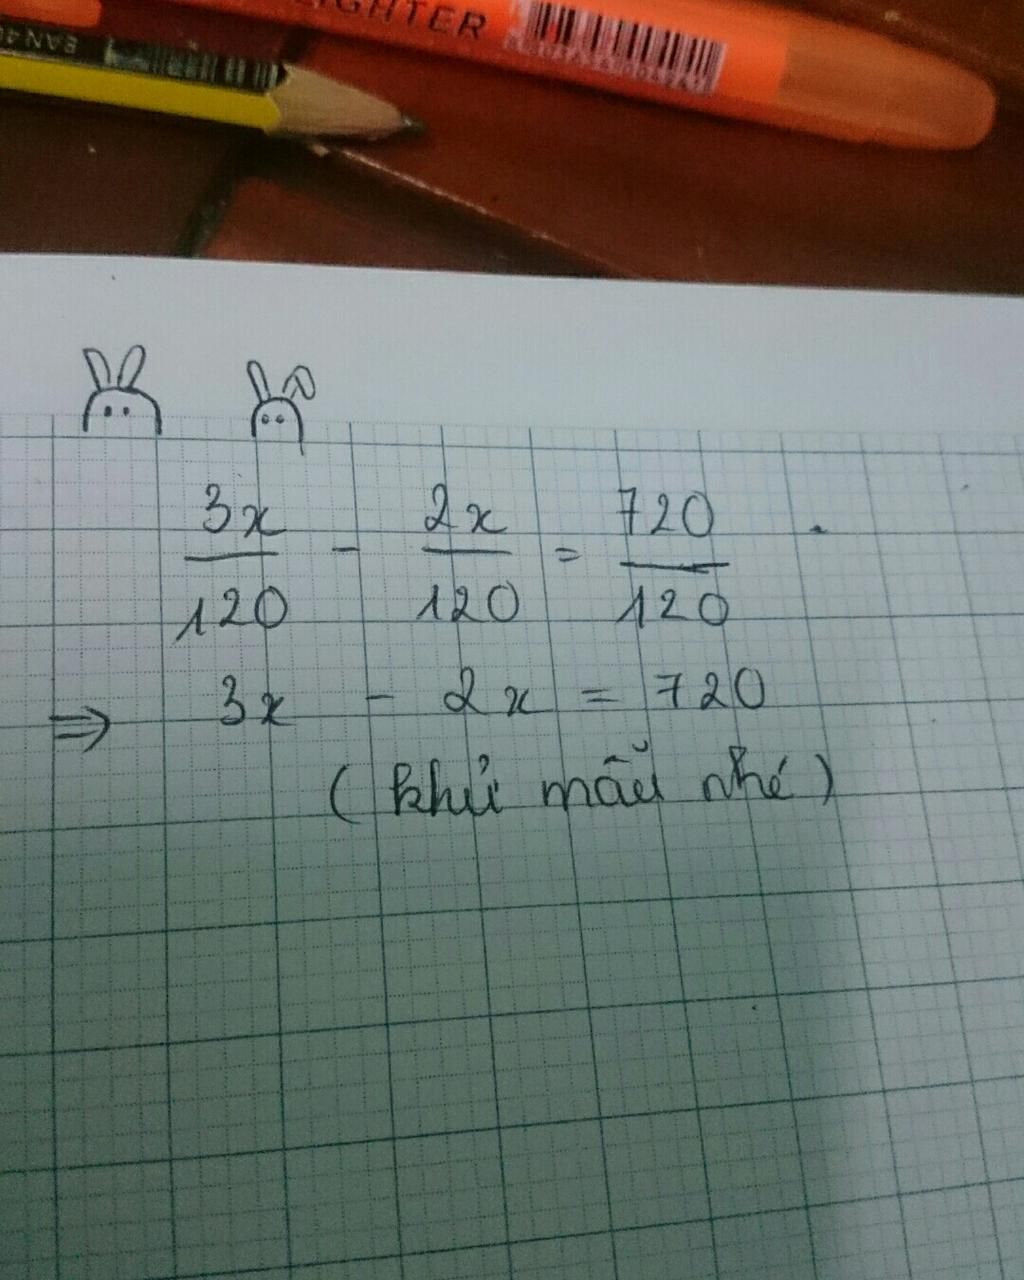 LIGHTER
EAN 4
3x/120 - 2x/120 = 720/120
⇒ 3x - 2x = 720
(khử mẫu nhé)